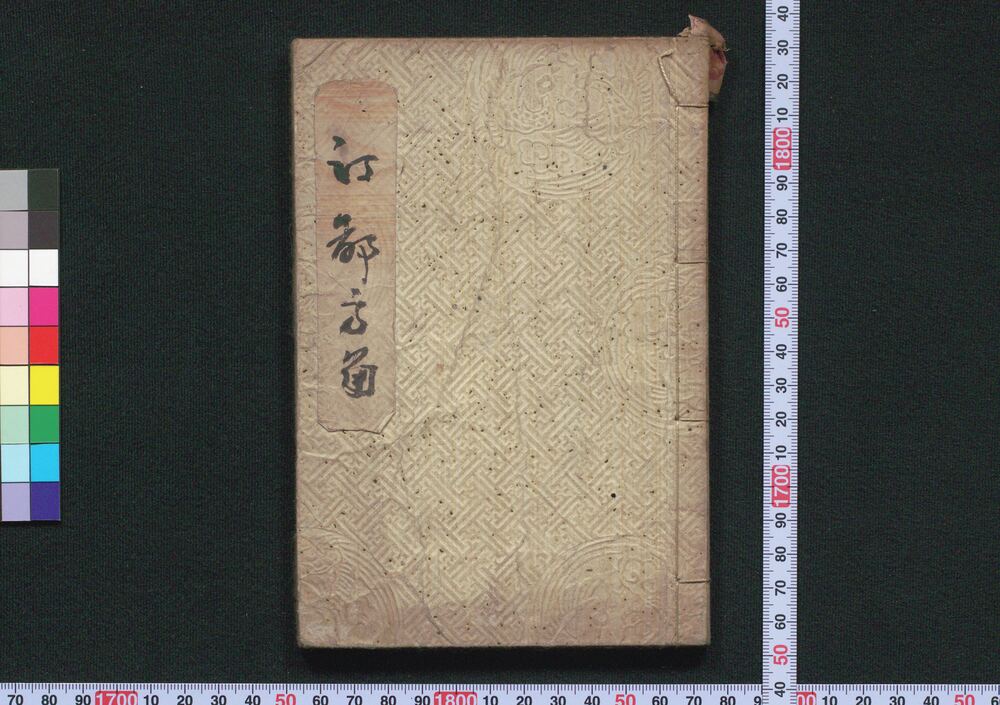 江都方角
40 30 20 10 1800 90 80 70 60 50 40 30 20 10 1700 90 80 70 60 50 40
70 80 90 1700 10 20 30 40 50 60 70 80 90 1800 10 20 30 40 50 60 70 80 00 10 20 30 40 50